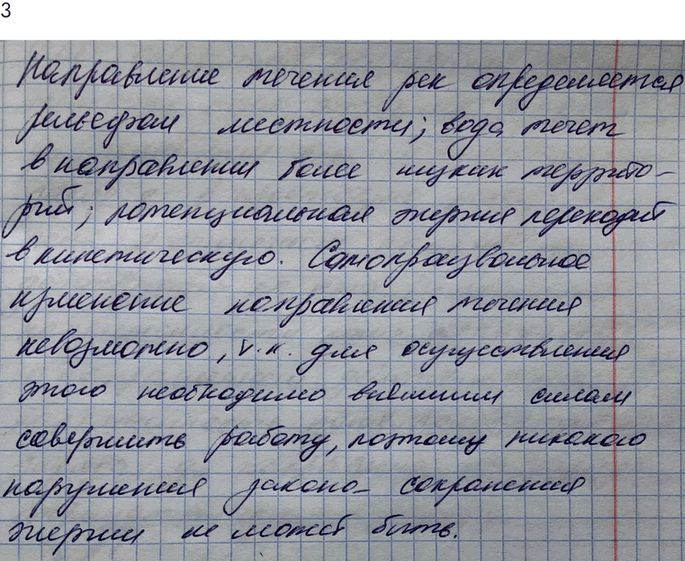 3
Направление течения рек определяется
рельефом местности; вода течет
в направлении более низких террито-
рий; потенциальная энергия переходит
в кинетическую. Самопроизвольное
изменение направления течения
невозможно, т.к. для осуществления
этого необходимо внешним силам
совершить работу, поэтому никакого
нарушения закона сохранения
энергии не может быть.